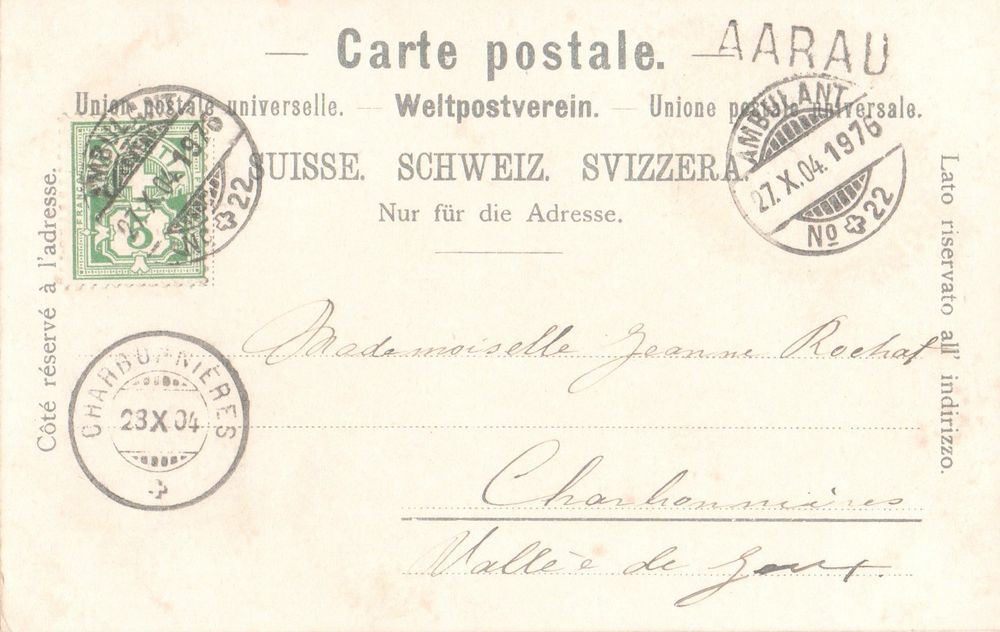 — Carte postale. —
AARAU
Union postale universelle. — Weltpostverein. — Unione postale universale.
SUISSE. SCHWEIZ. SVIZZERA.
Nur für die Adresse.
Côté réservé à l'adresse.
Lato riservato all' indirizzo.
FRANCO
5
AMBULANT
27.X.04.1976
No 22
AMBULANT
27.X.04.1976
No 22
CHARBONNIÈRES
28 X 04
Mademoiselle Jeanne Rochat
Charbonnières
Vallée de Joux.